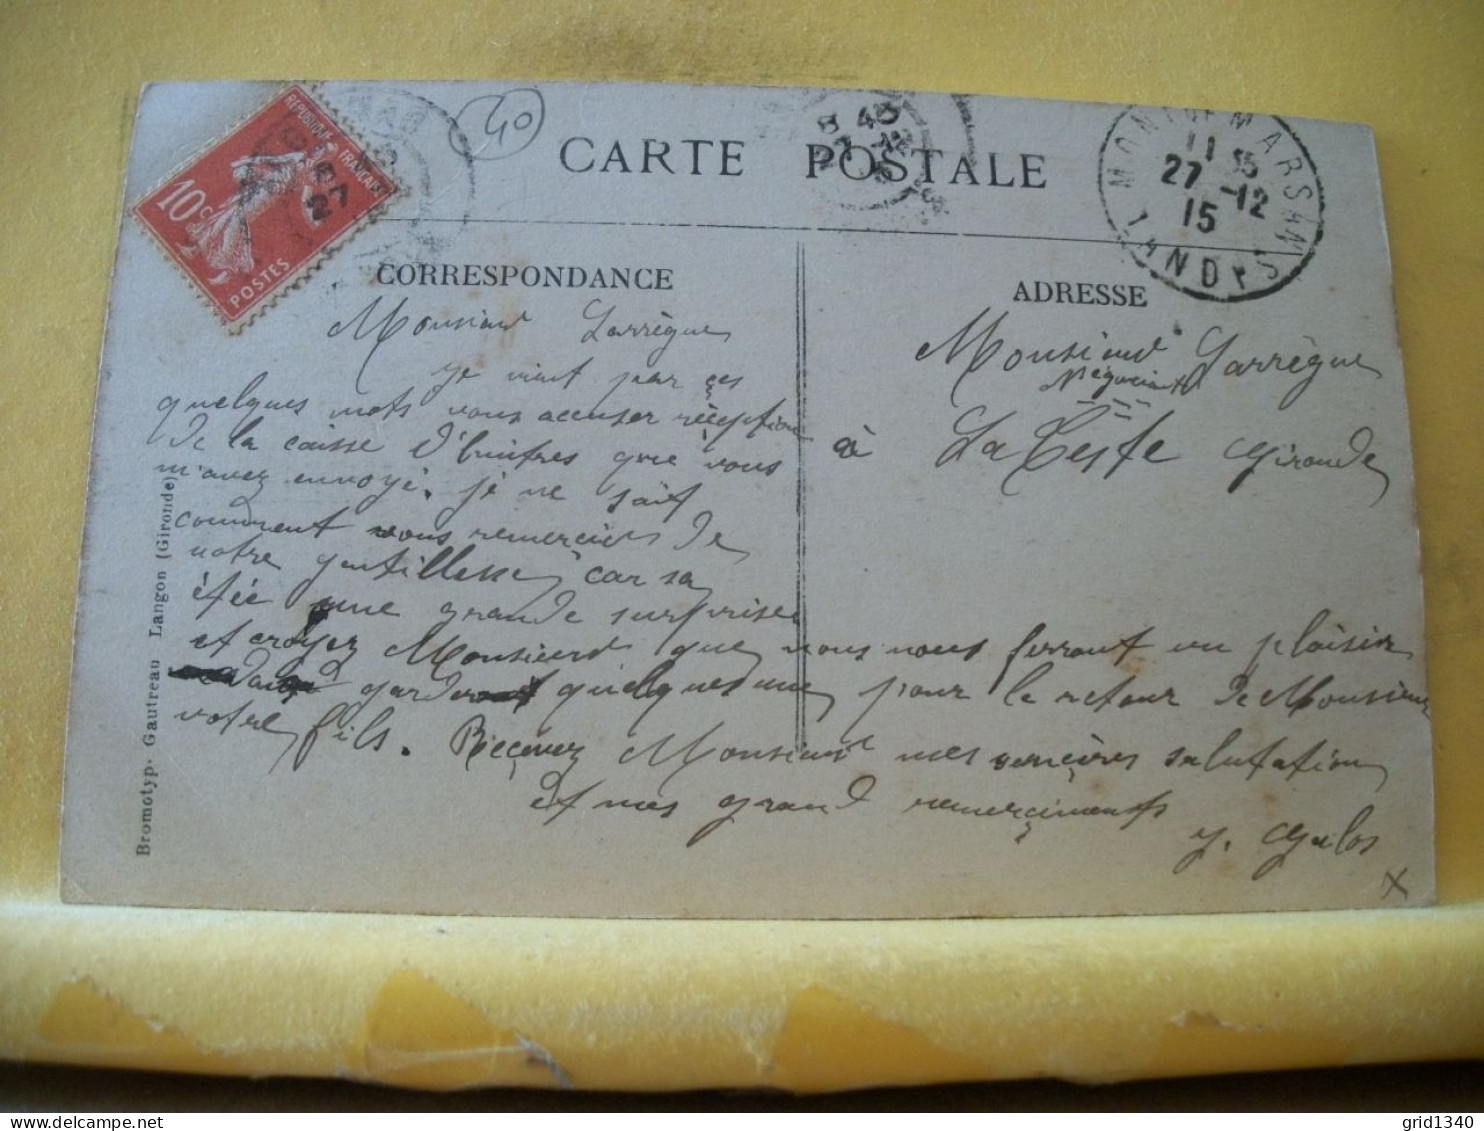 40
CARTE POSTALE
REPUBLIQUE FRANÇAISE
10c
POSTES
27
8 45
MONT-DE-MARSAN
11 15
27 -12
15
LANDES
CORRESPONDANCE
ADRESSE
Monsieur Larrègue
je vient par ces
quelques mots vous accuser réception
de la caisse d'huitres que vous
m'avez envoyé. je ne sait
comment vous remercier de
votre gentillesse, car sa
étée une grande surprise
et croyez Monsieur que vous nous ferront un plaisir
garder quelques une pour le retour de Monsieur
votre fils. Recevez Monsieur mes sincères salutation
et mes grand remerciments
Y. Galos
Monsieur Larrègue
Négociant
à La Teste Gironde
Bromotyp. Gautreau Langon (Gironde)
x
grid1340